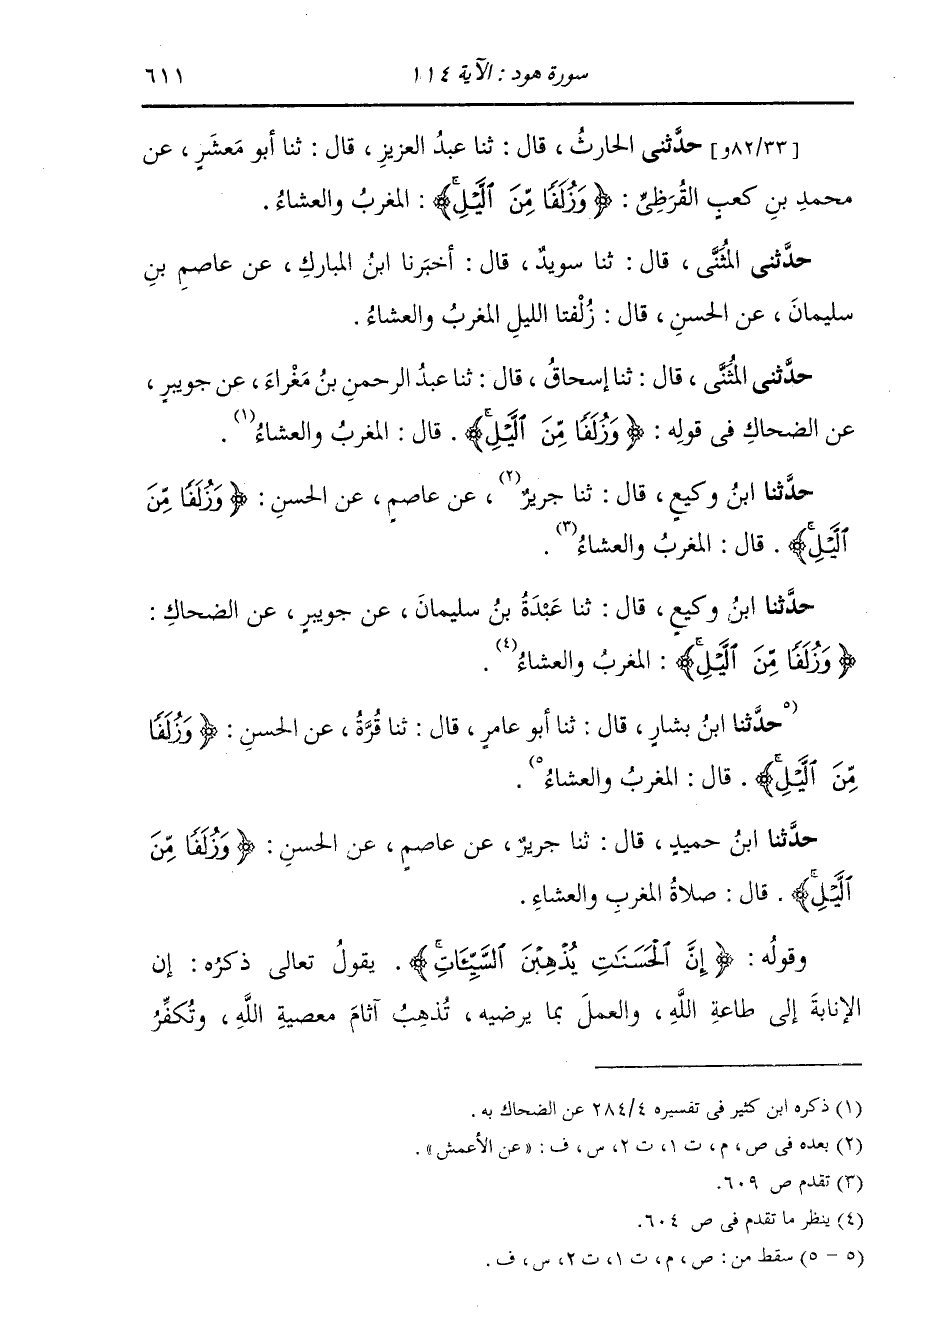 سورة هود : الآية ١١٤ ٦١١
[٨٢/٣٣و] حدَّثنى الحارثُ ، قال : ثنا عبدُ العزيزِ ، قال : ثنا أبو مَعشَرٍ ، عن
محمدِ بنِ كعبٍ القُرَظِىِّ : ﴿ وَزُلَفًا مِّنَ ٱلَّيْلِۚ ﴾ : المغربُ والعشاءُ .
حدَّثنى المُثَنَّى ، قال : ثنا سويدٌ ، قال : أخبَرنا ابنُ المباركِ ، عن عاصمِ بنِ
سليمانَ ، عن الحسنِ ، قال : زُلْفتا الليلِ المغربُ والعشاءُ .
حدَّثنى المُثَنَّى ، قال : ثنا إسحاقُ ، قال : ثنا عبدُ الرحمنِ بنُ مَغْراءَ ، عن جويبرٍ ،
عن الضحاكِ فى قولِه : ﴿ وَزُلَفًا مِّنَ ٱلَّيْلِۚ ﴾ . قال : المغربُ والعشاءُ(١) .
حدَّثنا ابنُ وكيعٍ ، قال : ثنا جريرٌ(٢) ، عن عاصمٍ ، عن الحسنِ : ﴿ وَزُلَفًا مِّنَ
ٱلَّيْلِۚ ﴾ . قال : المغربُ والعشاءُ(٣) .
حدَّثنا ابنُ وكيعٍ ، قال : ثنا عَبْدَةُ بنُ سليمانَ ، عن جويبرٍ ، عن الضحاكِ :
﴿ وَزُلَفًا مِّنَ ٱلَّيْلِۚ ﴾ : المغربُ والعشاءُ(٤) .
٥)حدَّثنا ابنُ بشارٍ ، قال : ثنا أبو عامرٍ ، قال : ثنا قُرَّةُ ، عن الحسنِ : ﴿ وَزُلَفًا
مِّنَ ٱلَّيْلِۚ ﴾ . قال : المغربُ والعشاءُ(٥ .
حدَّثنا ابنُ حميدٍ ، قال : ثنا جريرٌ ، عن عاصمٍ ، عن الحسنِ : ﴿ وَزُلَفًا مِّنَ
ٱلَّيْلِۚ ﴾ . قال : صلاةُ المغربِ والعشاءِ .
وقولُه : ﴿ إِنَّ ٱلْحَسَنَٰتِ يُذْهِبْنَ ٱلسَّيِّـَٔاتِۚ ﴾ . يقولُ تعالى ذكرُه : إن
الإنابةَ إلى طاعةِ اللَّهِ ، والعملَ بما يرضيه ، تُذهِبُ آثامَ معصيةِ اللَّهِ ، وتُكفِّرُ
(١) ذكره ابن كثير فى تفسيره ٢٨٤/٤ عن الضحاك به .
(٢) بعده فى ص ، م ، ت ١، ت ٢، س ، ف : « عن الأعمش » .
(٣) تقدم ص ٦٠٩.
(٤) ينظر ما تقدم فى ص ٦٠٤.
(٥ - ٥) سقط من : ص ، م ، ت ١، ت ٢، س ، ف .